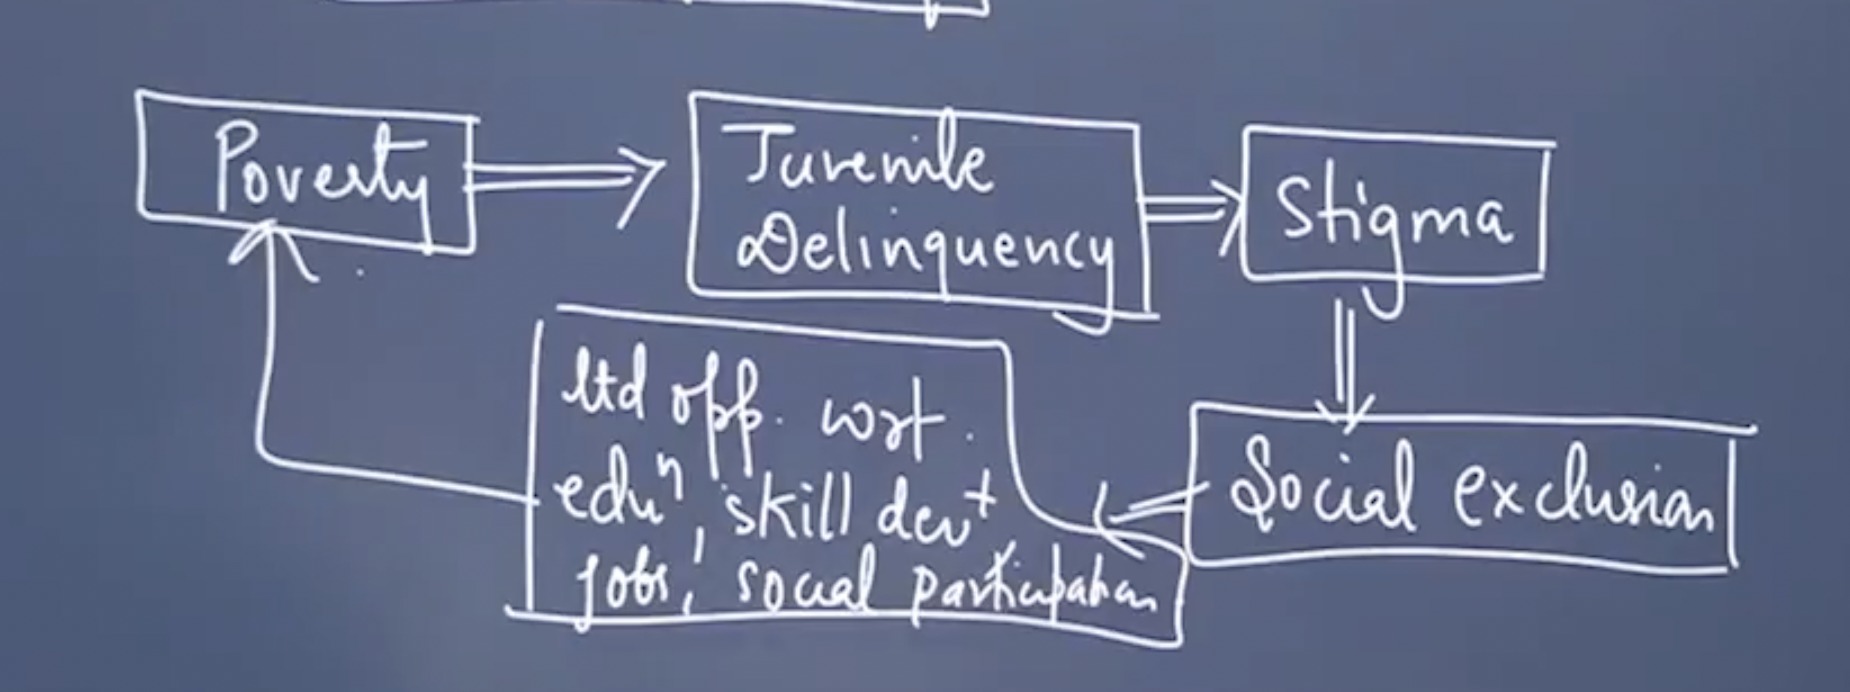 Poverty
Juvenile
Delinquency
Stigma
Social exclusion
ltd opp. wrt.
eduⁿ, skill devt
jobs, social participation